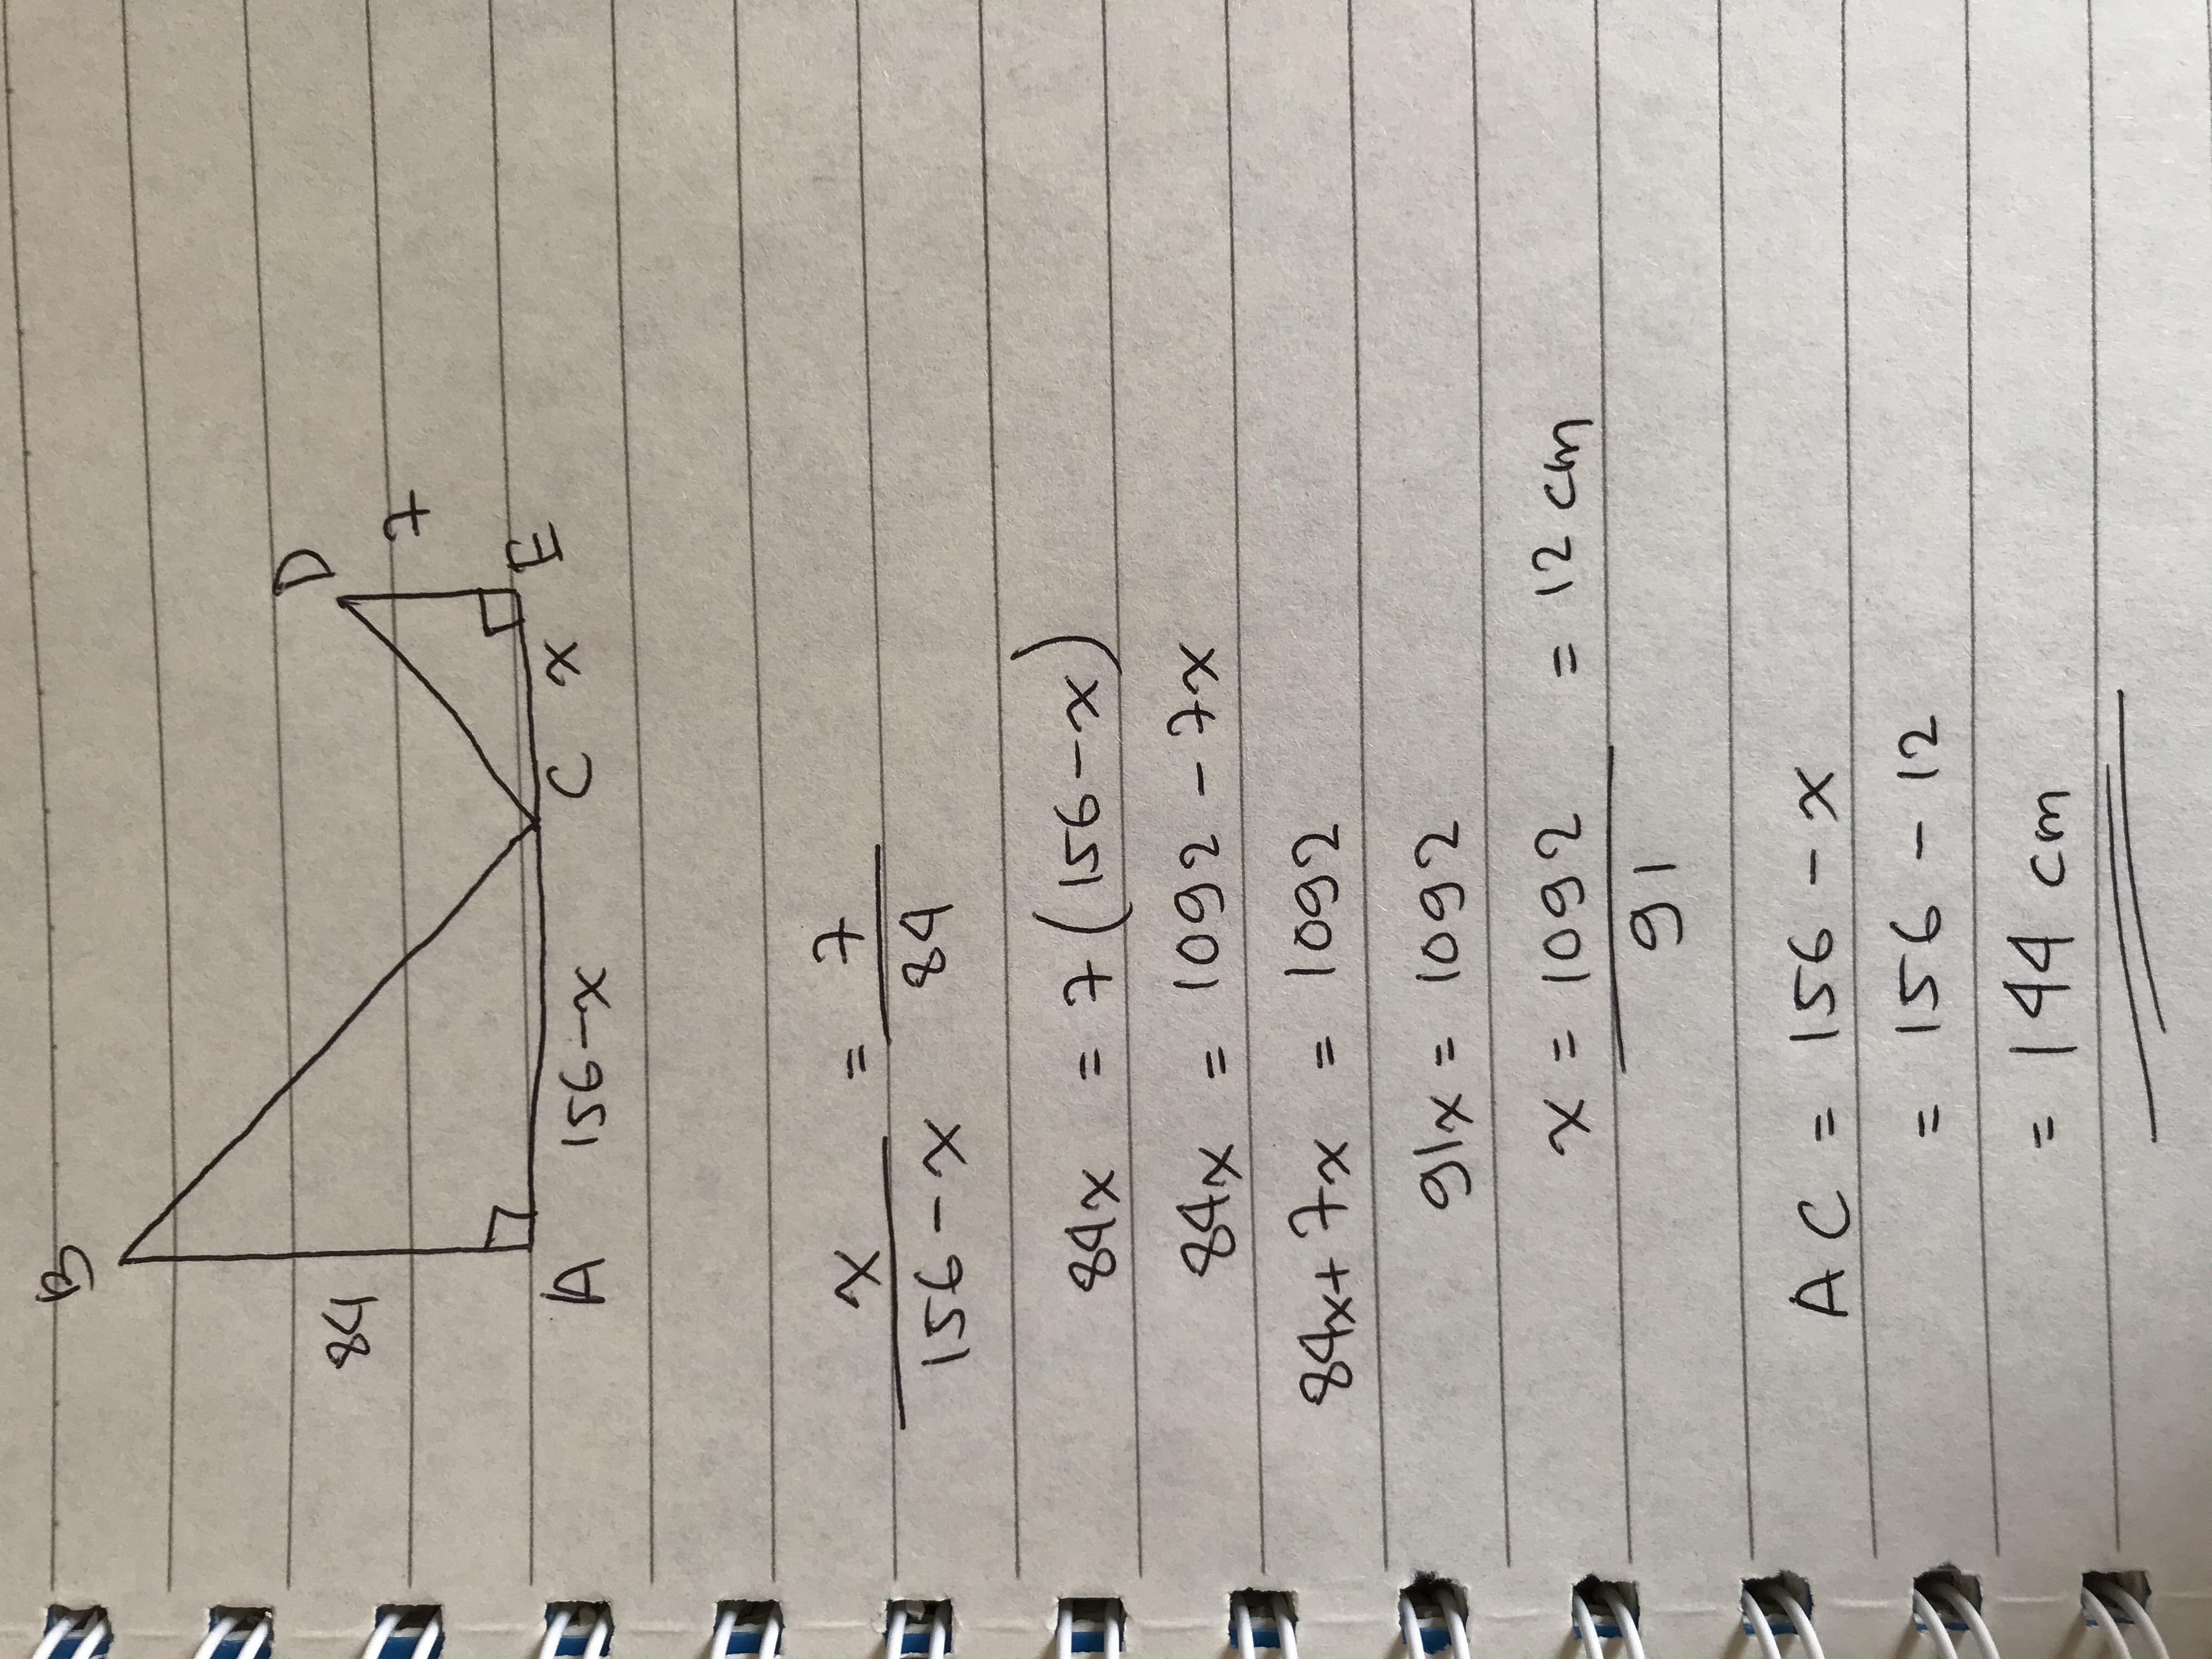 B
D
84
7
A 156-x C x E
x/(156-x) = 7/84
84x = 7(156-x)
84x = 1092 - 7x
84x+7x = 1092
91x = 1092
x = 1092/91 = 12 cm
AC = 156-x
= 156-12
= 144 cm